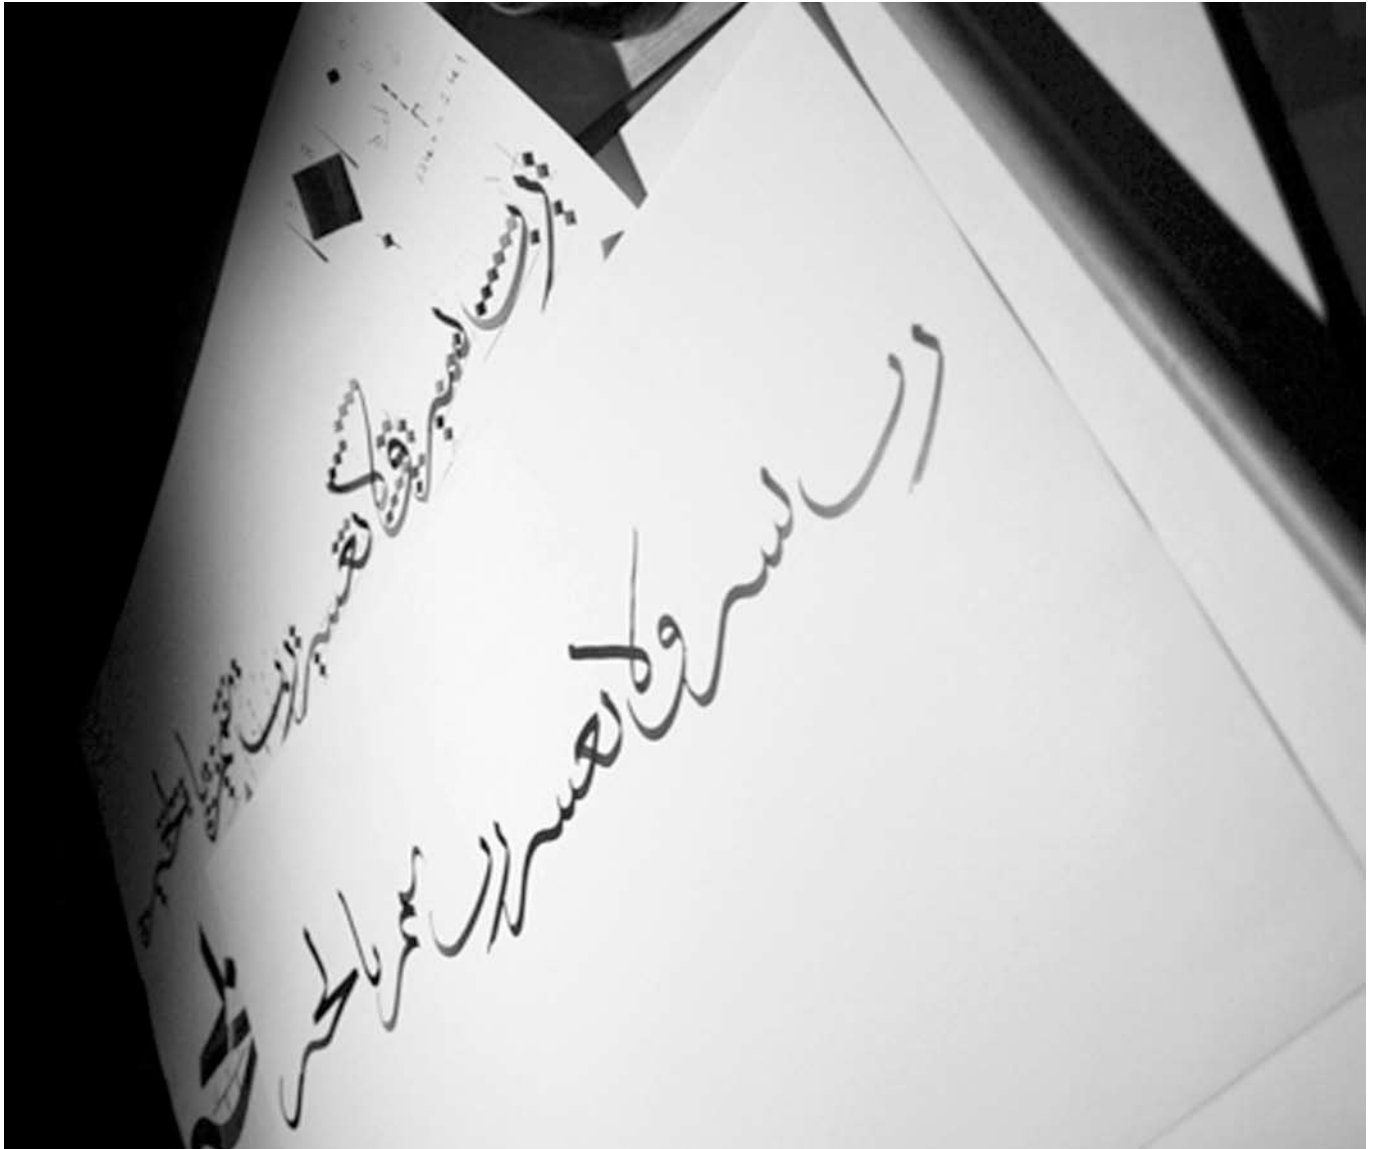 رب يسر ولا تعسر رب تمم بالخير
رب يسر ولا تعسر رب تمم بالخير